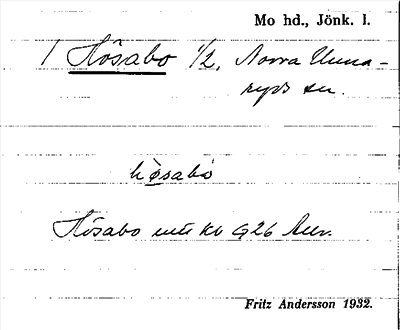 Mo hd., Jönk. l.
1 Hösabo 1/2, Norra Unna-
ryds sn.
hø̀sabò
Hösabo G26
Fritz Andersson 1932.